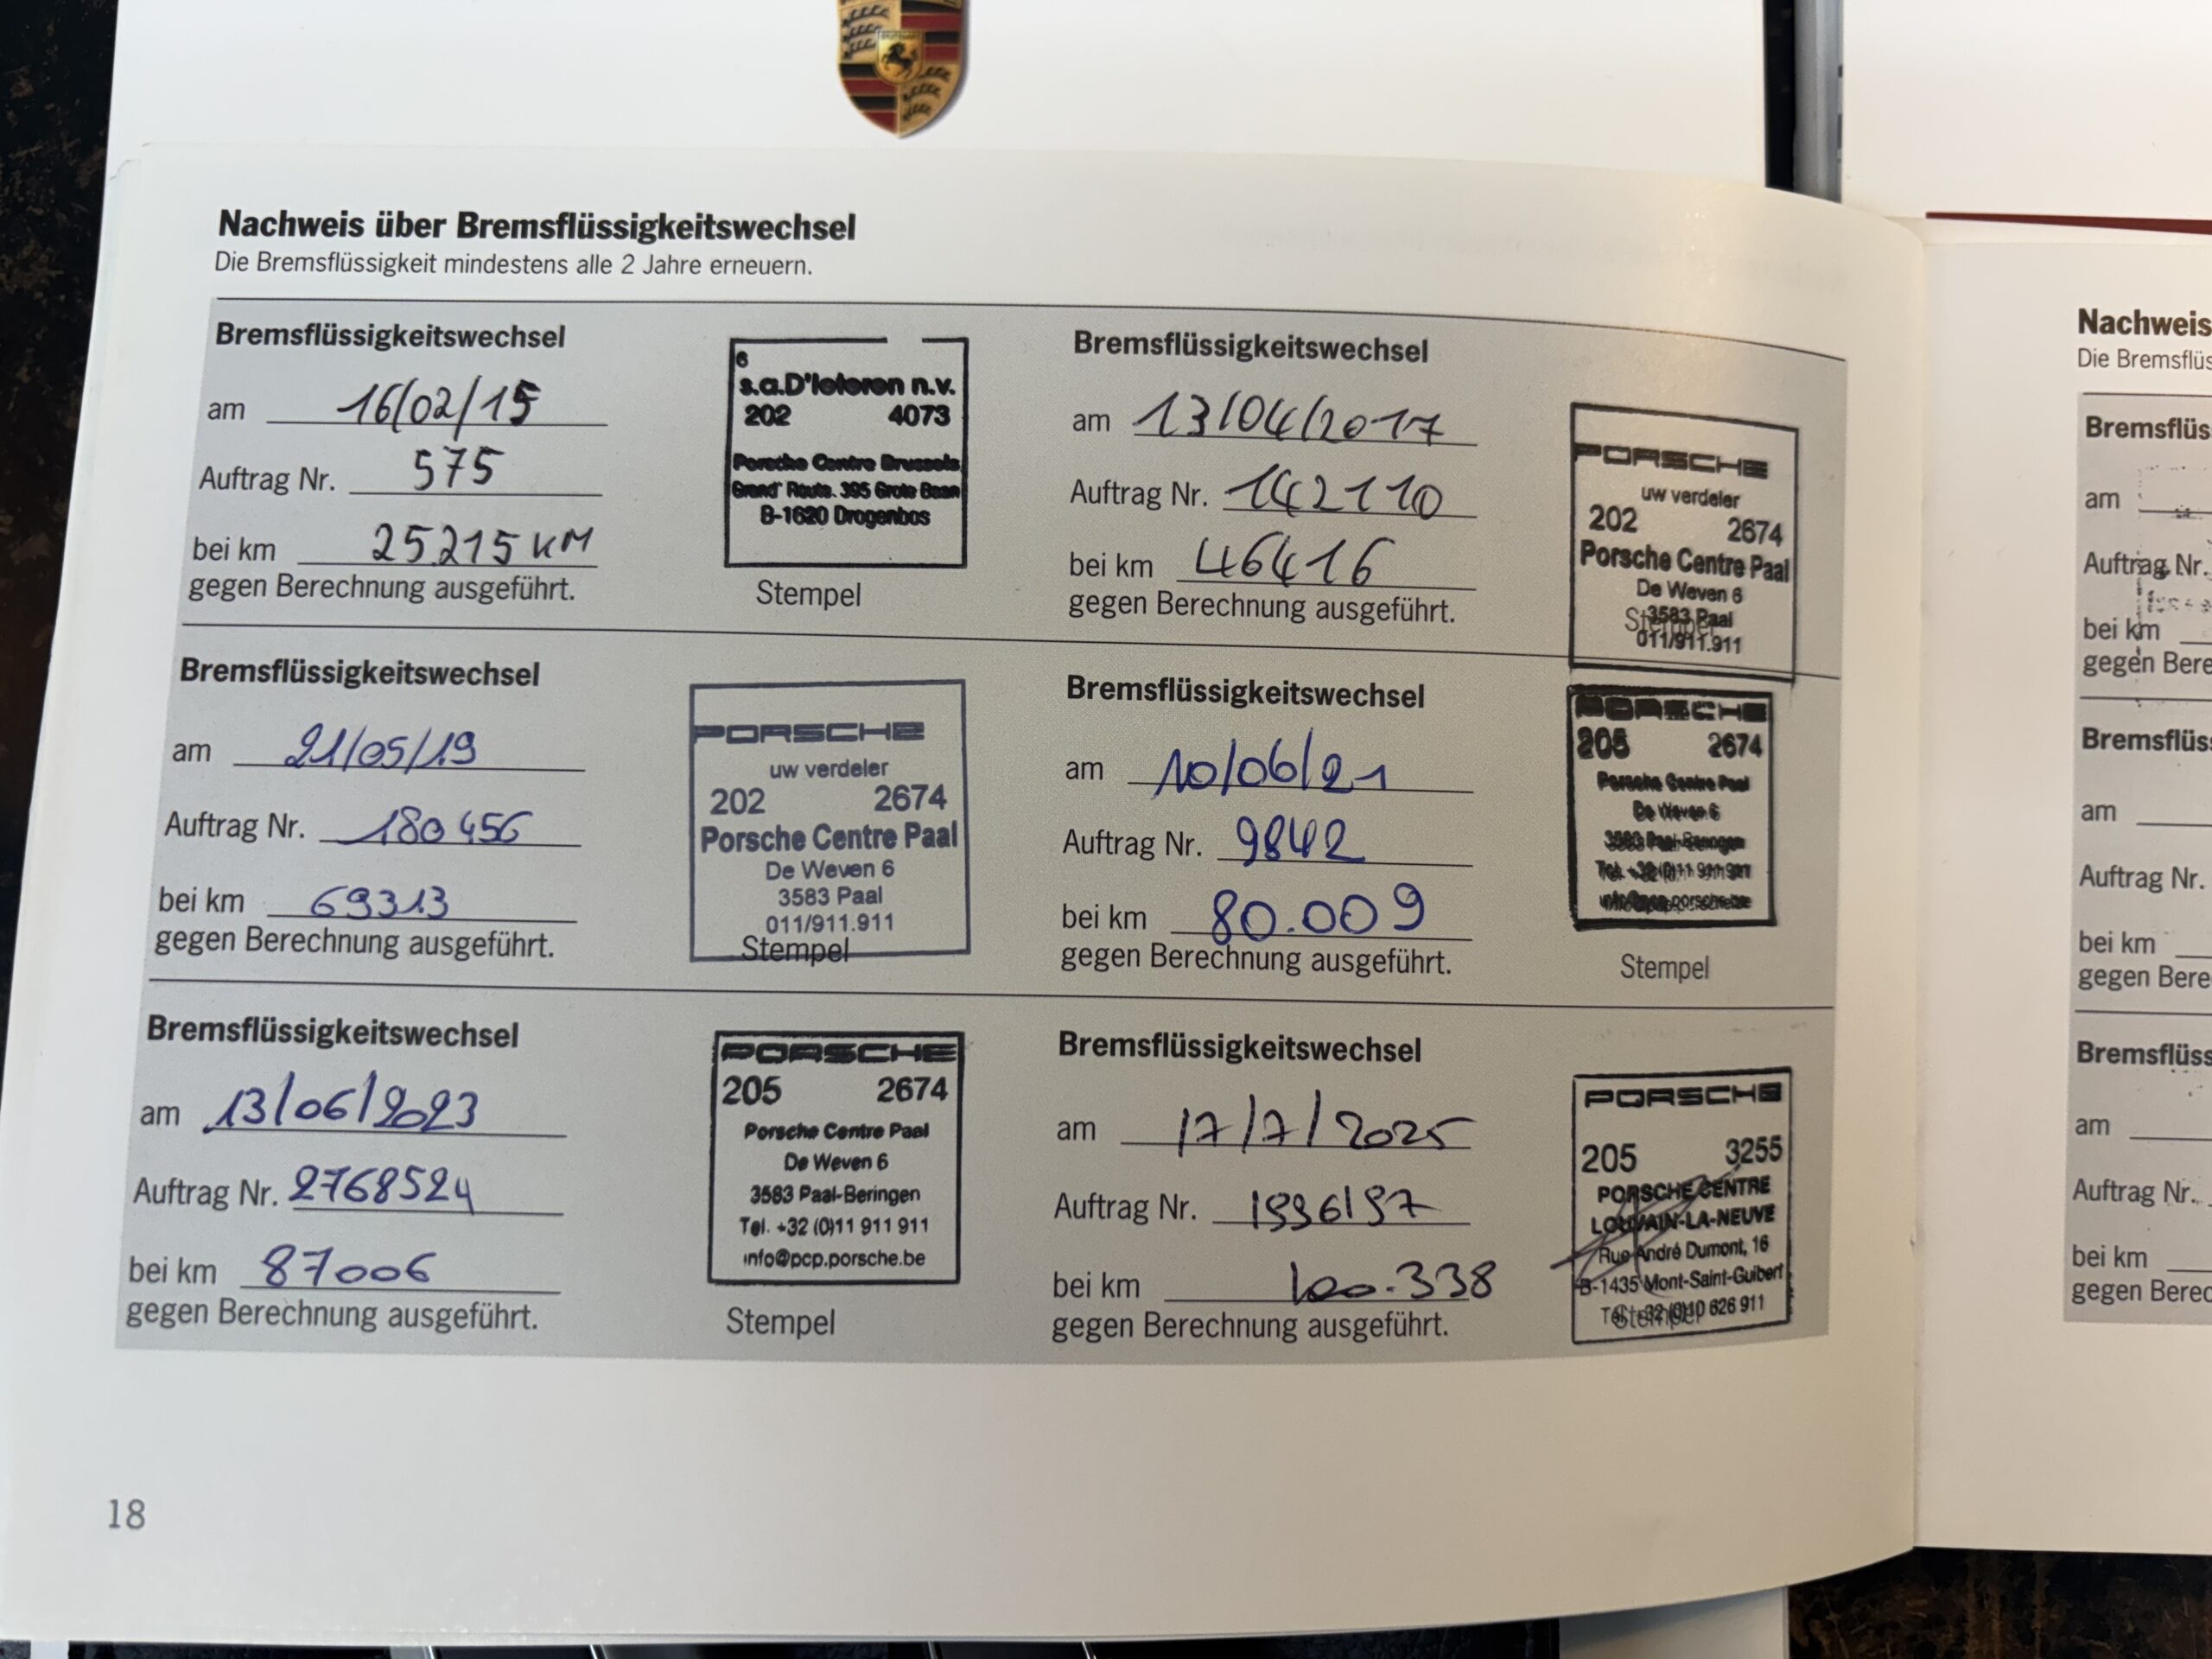 Nachweis über Bremsflüssigkeitswechsel
Die Bremsflüssigkeit mindestens alle 2 Jahre erneuern.
Bremsflüssigkeitswechsel
am 16/02/15
Auftrag Nr. 575
bei km 25.215 KM
gegen Berechnung ausgeführt.
6
s.a.D'Ieteren n.v.
202 4073
Porsche Centre Brussels
Grand' Route. 395 Grote Baan
B-1620 Drogenbos
Stempel
Bremsflüssigkeitswechsel
am 13/04/2017
Auftrag Nr. 142110
bei km 46416
gegen Berechnung ausgeführt.
PORSCHE
uw verdeler
202 2674
Porsche Centre Paal
De Weven 6
3583 Paal
011/911.911
Stempel
Bremsflüssigkeitswechsel
am 21/05/19
Auftrag Nr. 180456
bei km 69313
gegen Berechnung ausgeführt.
PORSCHE
uw verdeler
202 2674
Porsche Centre Paal
De Weven 6
3583 Paal
011/911.911
Stempel
Bremsflüssigkeitswechsel
am 10/06/21
Auftrag Nr. 9842
bei km 80.009
gegen Berechnung ausgeführt.
PORSCHE
205 2674
Porsche Centre Paal
De Weven 6
3583 Paal-Beringen
Tel. +32 (0)11 911 911
info@pcp.porsche.be
Stempel
Bremsflüssigkeitswechsel
am 13/06/2023
Auftrag Nr. 2768524
bei km 87006
gegen Berechnung ausgeführt.
PORSCHE
205 2674
Porsche Centre Paal
De Weven 6
3583 Paal-Beringen
Tel. +32 (0)11 911 911
info@pcp.porsche.be
Stempel
Bremsflüssigkeitswechsel
am 17/7/2025
Auftrag Nr.
bei km 100.338
gegen Berechnung ausgeführt.
PORSCHE
205 3255
PORSCHE CENTRE
LOUVAIN-LA-NEUVE
Rue André Dumont, 16
B-1435 Mont-Saint-Guibert
Tél. +32 (0)10 626 911
Stempel
18
Nachweis
Die Bremsflüs
Bremsflüs
am
Auftrag Nr.
bei km
gegen Bere
Bremsflüs
am
Auftrag Nr.
bei km
gegen Bere
Bremsflüss
am
Auftrag Nr.
bei km
gegen Berec